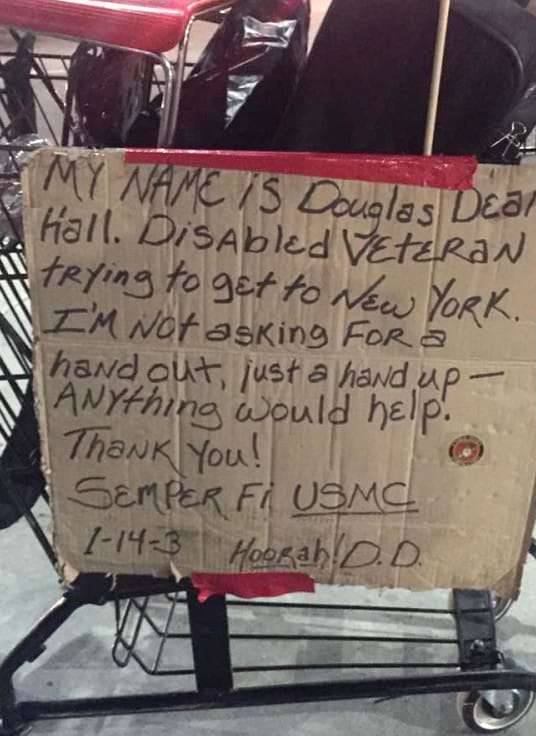 MY NAME is Douglas Dean
Hall. DisAbled VEtERaN
trying to get to New YORK.
I'M Not asking FOR a
hand out, just a hand up —
ANYthing would help.
Thank You!
SEMPER Fi USMC
1-14-3 HooRah! D.D.